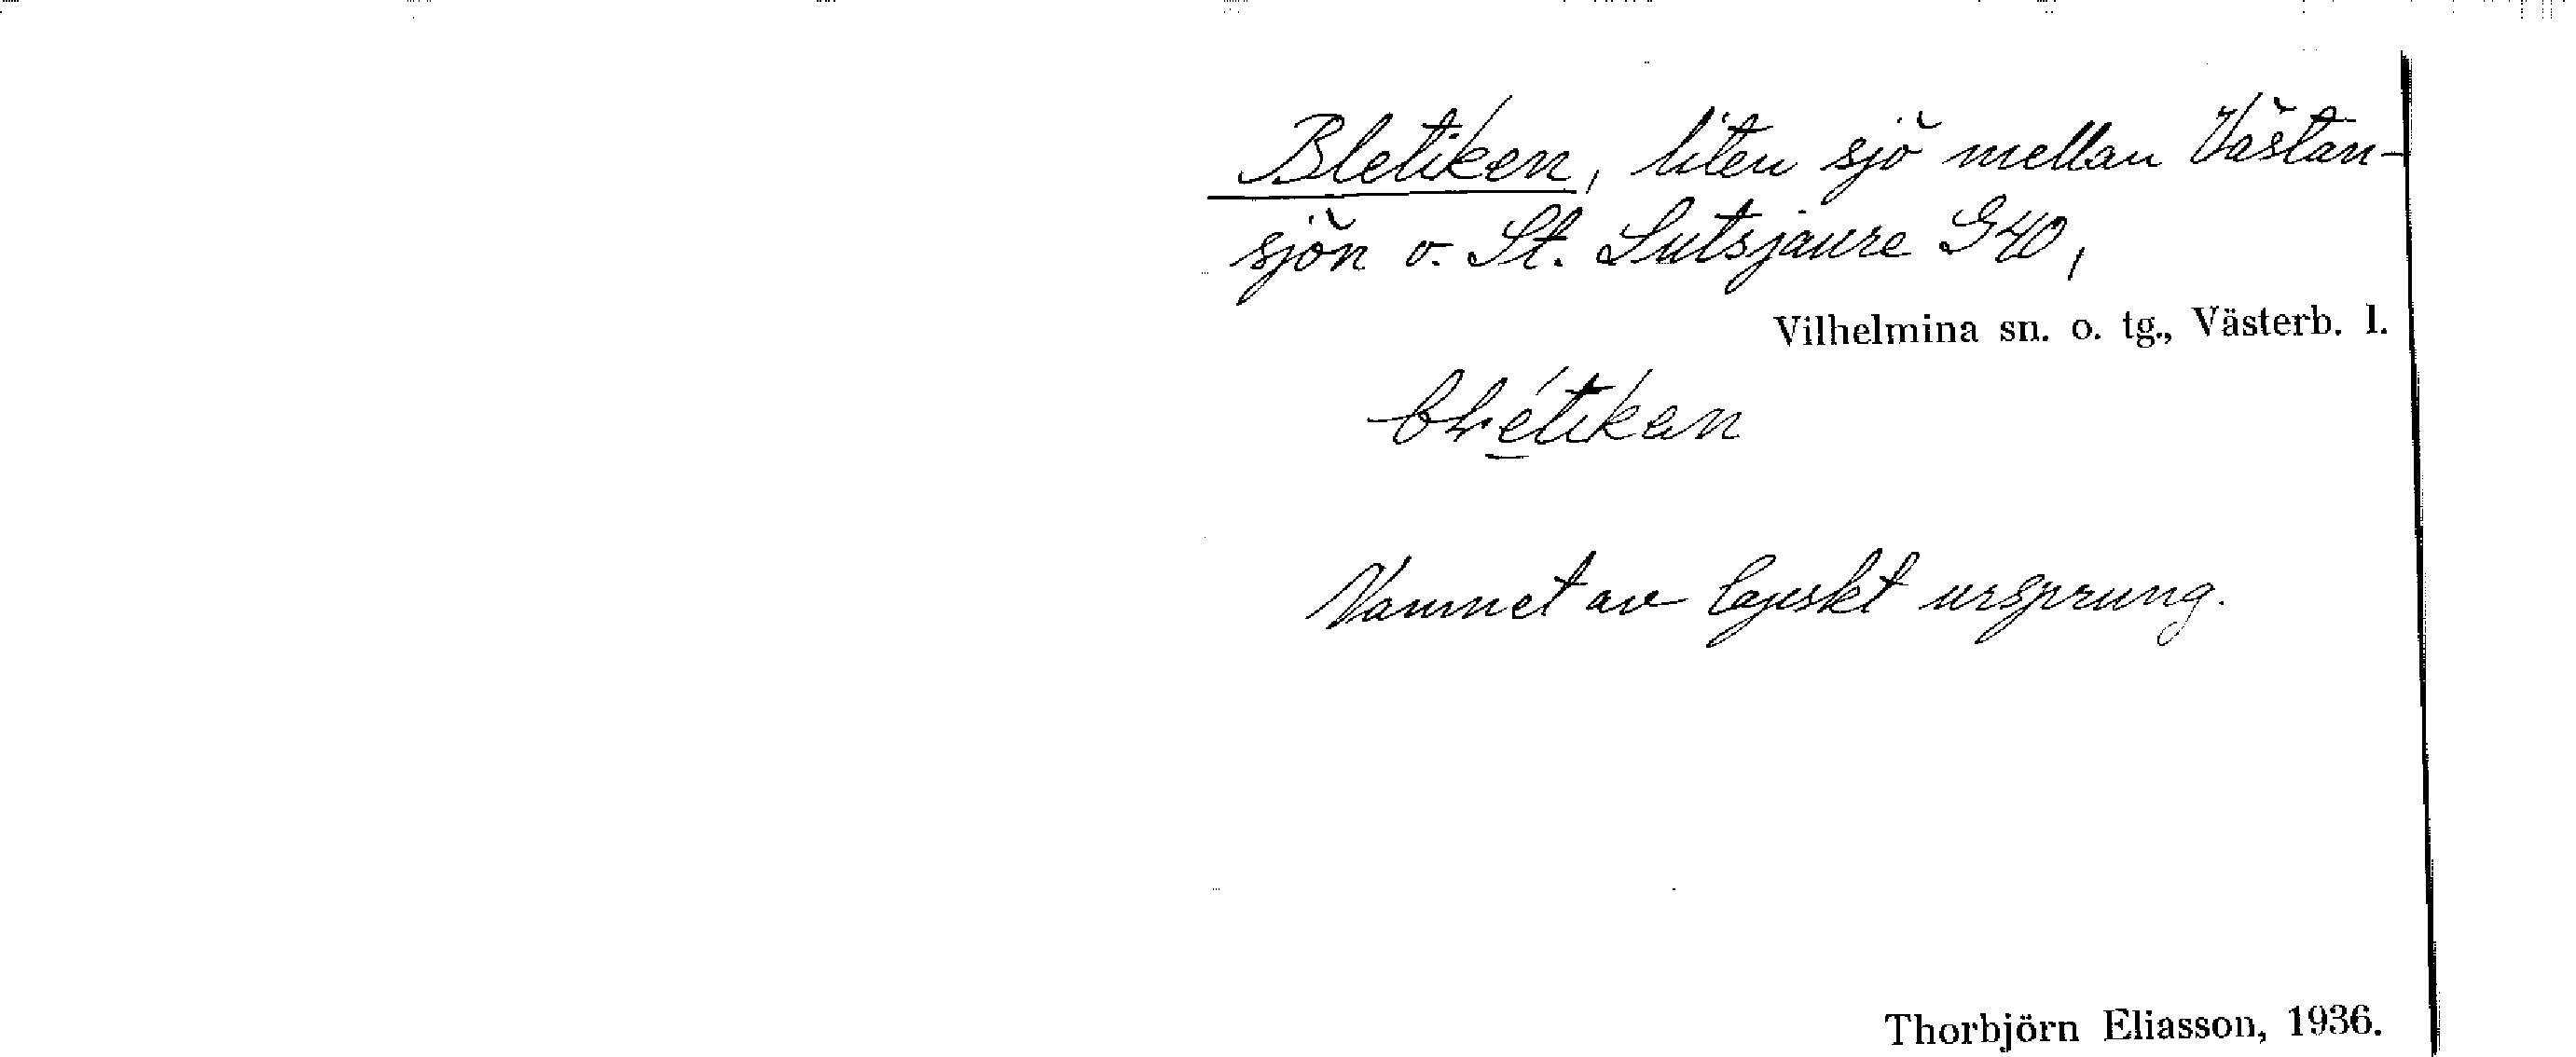 Bletiken, liten sjö mellan Västan-
sjön o. St. Lutsjaure G40,
Vilhelmina sn. o. tg., Västerb. l.
blétikan
Namnet av lapskt ursprung.
Thorbjörn Eliasson, 1936.